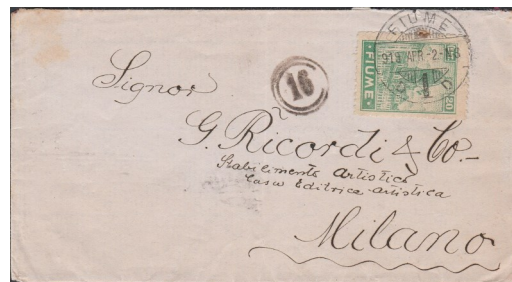 FIUME
919 APR -2.-N6
FIUME
20
D
16
Signor
G. Ricordi & Co.-
Stabilimento Artistico
Casa Editrice-artistica
Milano